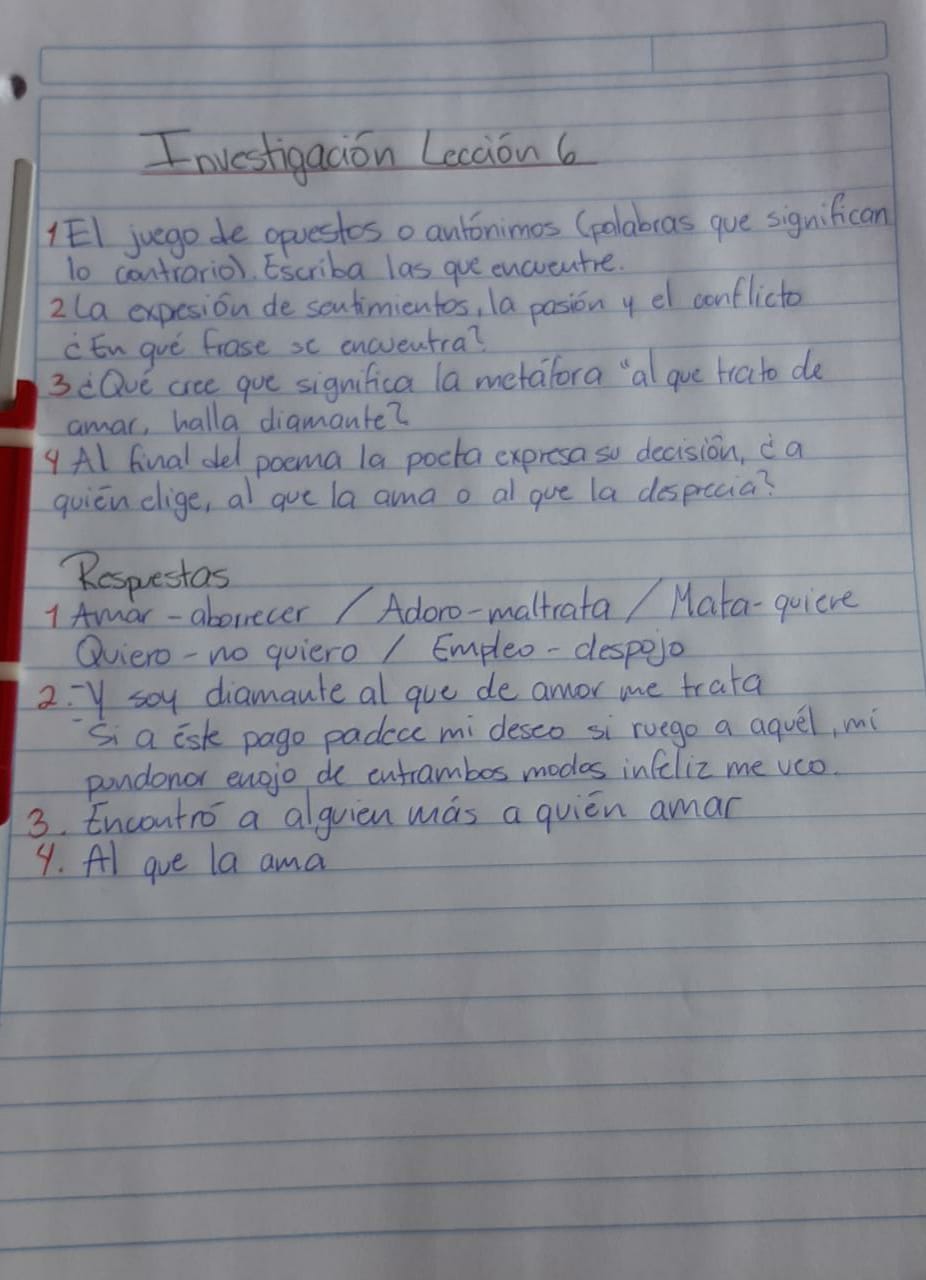 Investigación Lección 6
1 El juego de opuestos o antónimos (palabras que significan
lo contrario). Escriba las que encuentre.
2 La expesión de sentimientos, la pasión y el conflicto
¿En qué frase se encuentra?
3 ¿Qué cree que significa la metáfora "al que trato de
amar, halla diamante?
4 Al final del poema la poeta expresa su decisión, ¿a
quién elige, al que la ama o al que la desprecia?
Respuestas
1 Amar - aborrecer / Adoro - maltrata / Mata - quiere
Quiero - no quiero / Empleo - despojo
2. - Y soy diamante al que de amor me trata
- Si a éste pago padece mi deseo si ruego a aquél, mi
pondonor enojo de entrambos modos infeliz me veo.
3. Encontró a alguien más a quién amar
4. Al que la ama